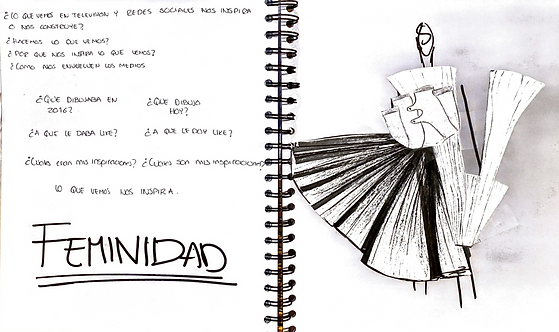 ¿LO QUE VEMOS EN TELEVISION Y REDES SOCIALES NOS INSPIRA
O NOS CONSTRUYE?
¿HACEMOS LO QUE VEMOS?
¿POR QUE NOS INSPIRA LO QUE VEMOS?
¿COMO NOS ENVUELVEN LOS MEDIOS
¿QUE DIBUJABA EN
2016?
¿QUE DIBUJO
HOY?
¿A QUE LE DABA LIKE? ¿A QUE LE DOY LIKE?
¿Cuales eran mis inspiraciones? ¿Cuales son mis inspiraciones
LO QUE VEMOS NOS INSPIRA.
FEMINIDAD